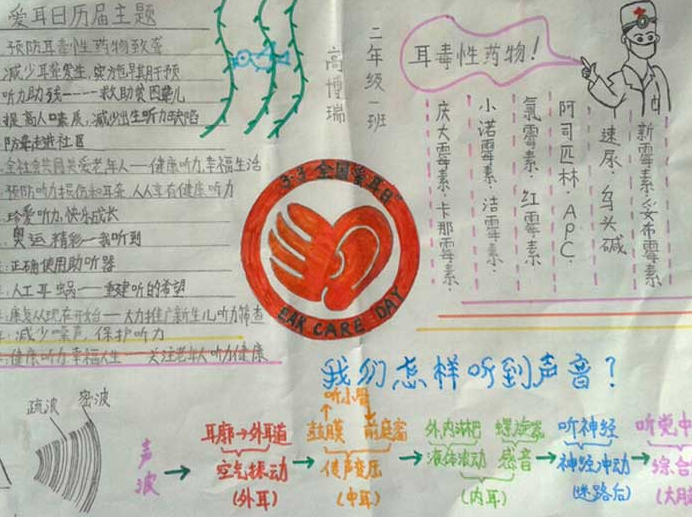 爱耳日历届主题
预防耳毒性药物致聋
减少耳聋发生,实施早期干预
听力助残——救助贫困聋儿
提高人口素质,减少出生听力缺陷
防聋走进社区
全社会共同关爱老年人——健康听力,幸福生活
预防听力损伤和耳聋,人人享有健康听力
珍爱听力,快乐成长
奥运精彩—我听到
正确使用助听器
人工耳蜗——重建听的希望
康复从现在开始—大力推广新生儿听力筛查
减少噪声,保护听力
健康听力,幸福人生——关注老年人听力健康
二年级一班
高博瑞
耳毒性药物!
新霉素.妥布霉素.
速尿.乌头碱
阿司匹林.APC.
氯霉素.红霉素.
小诺霉素.洁霉素.
庆大霉素.卡那霉素.
3·3全国爱耳日
EAR CARE DAY
我们怎样听到声音?
疏波 密波
声波
耳廓→外耳道
空气振动
(外耳)
听小骨
鼓膜 前庭窗
传声变压
(中耳)
外内淋巴 螺旋器
液体波动 感音
(内耳)
听神经
神经冲动
(迷路后)
听觉中
综合